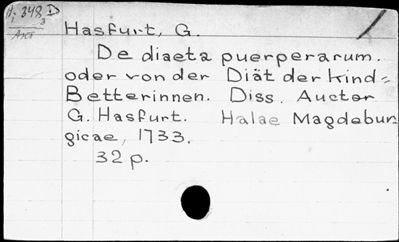 348 D
3
Hasfurt, G.
De diaeta puerperarum.
oder von der Diät der Kind=
Betterinnen. Diss. Auctor
G. Hasfurt. Halae Magdebur
gicae, 1733.
32 p.